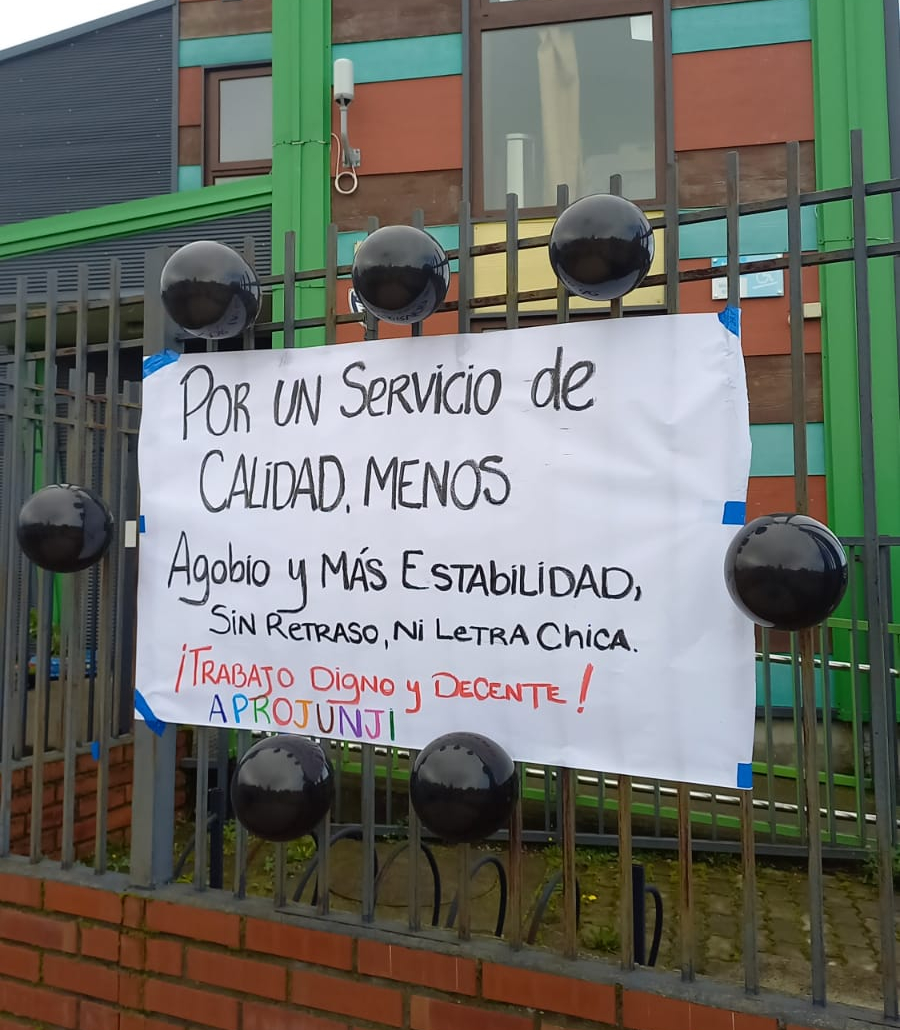 POR UN SERVICIO de
CALIDAD, MENOS
Agobio y MÁS ESTABILIDAD,
SIN RETRASO, Ni LETRA Chica.
¡TRABAJO Digno y DECENTE!
APROJUNJI